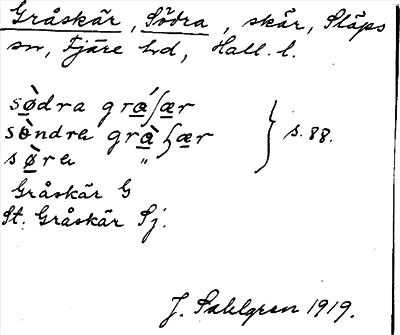 Gråskär, Södra, skär, Släps
sn, Fjäre hd, Hall. l.
sø̀dra grá̱ʃæ̱r
sø̀ndra grà̱ʃæ̱r } s. 88.
sø̱̀ra "
Gråskär G
St. Gråskär Sj.
J. Sahlgren 1919.